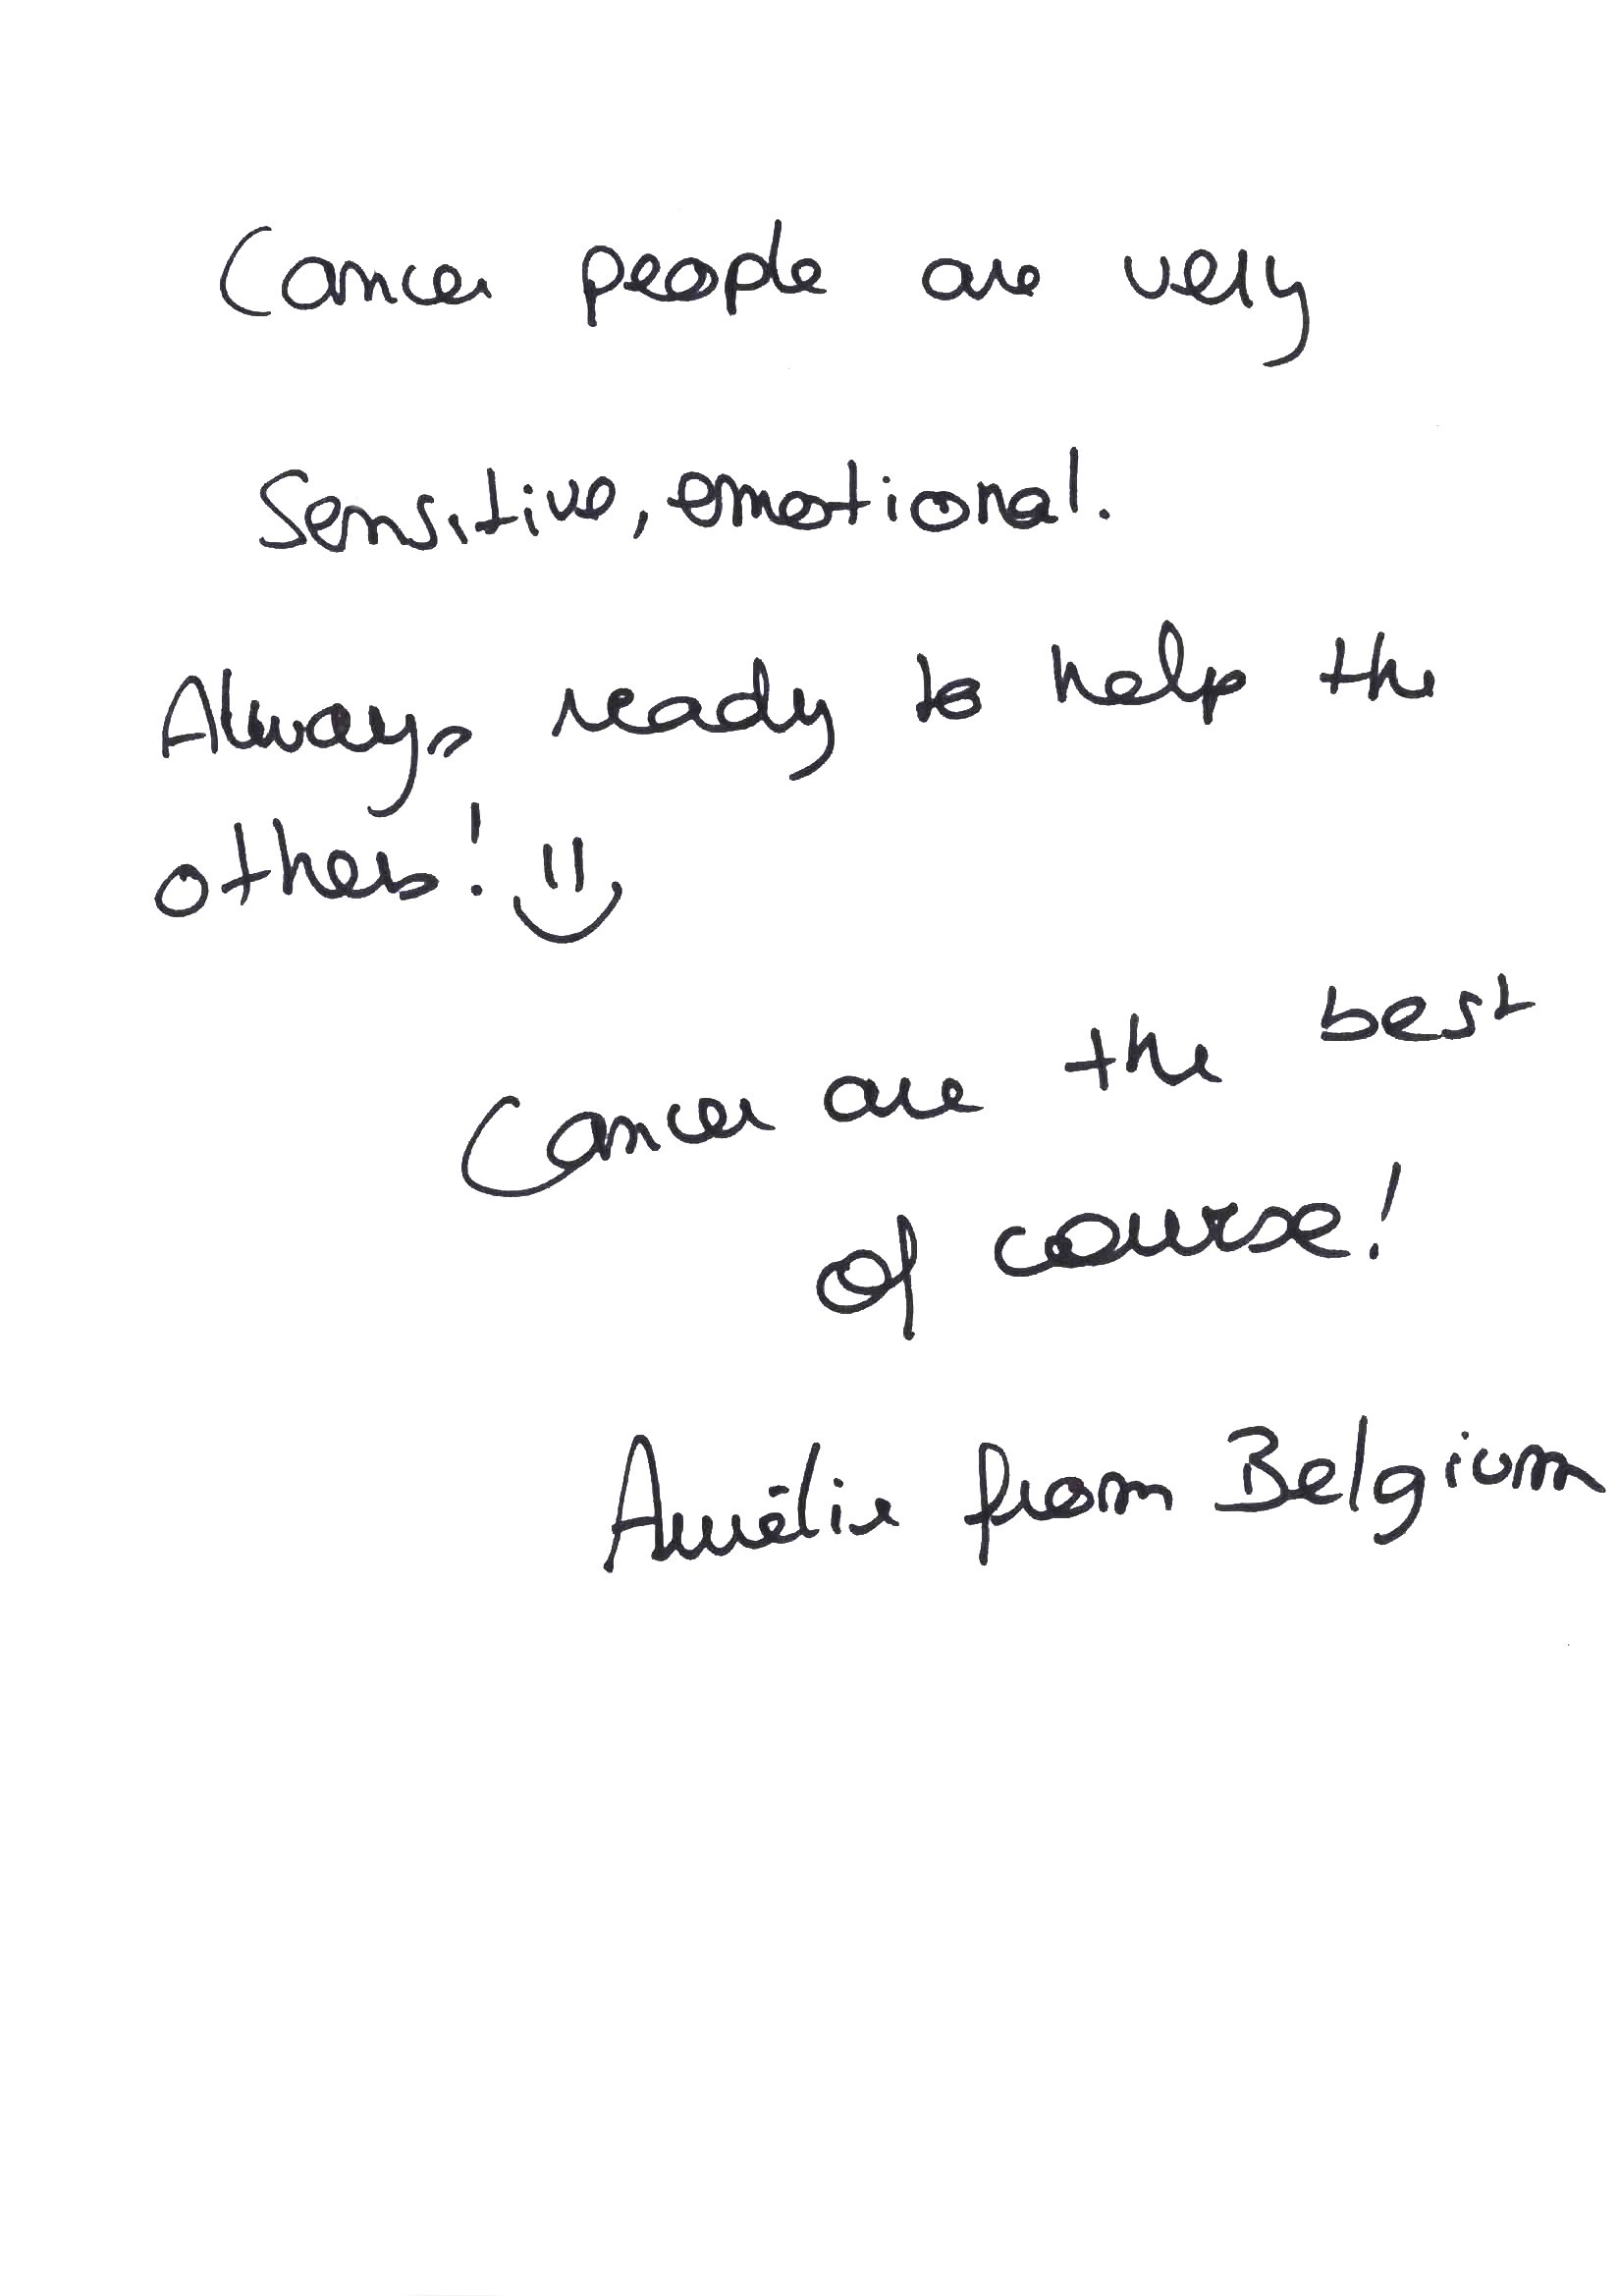 Cancer people are very
Sensitive, emotional.
Always ready to help the
others! :)
Cancer are the best
of course!
Aurélie from Belgium